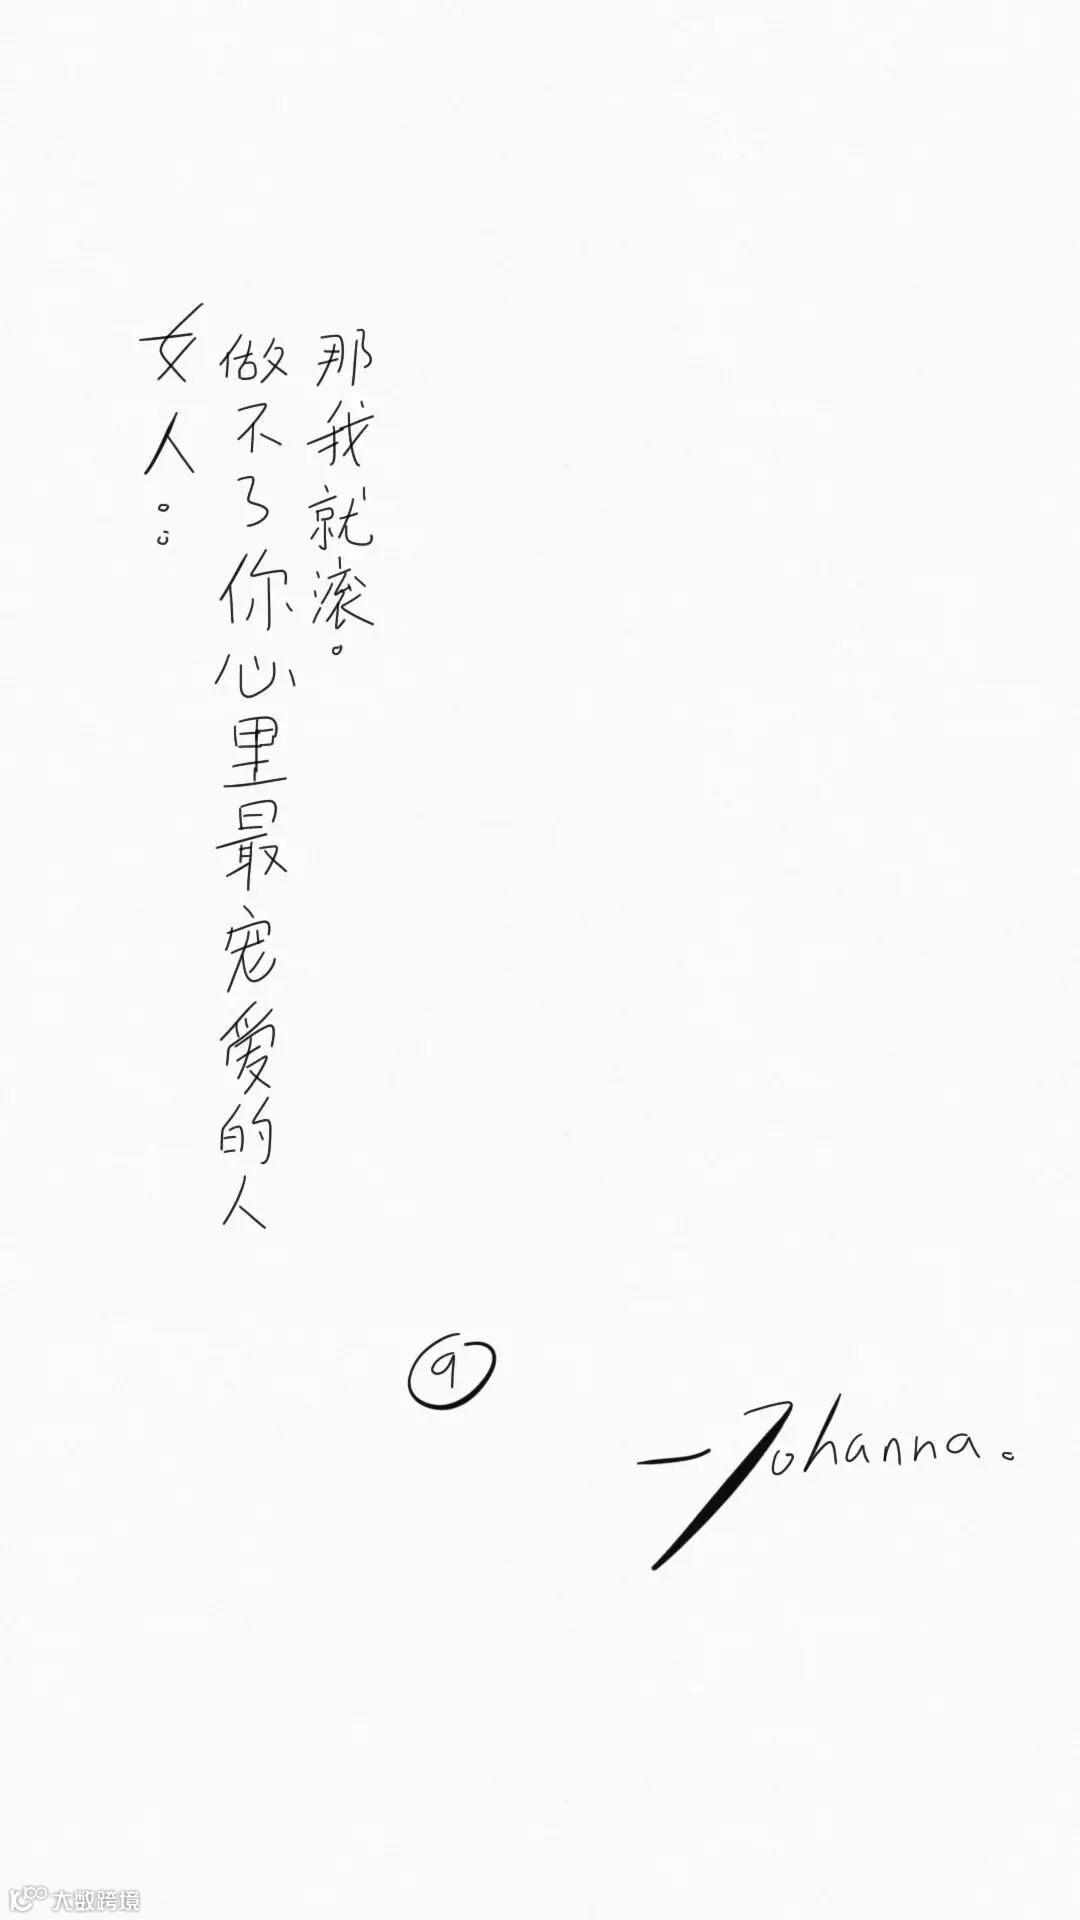 女人：
做不了你心里最宠爱的人
那我就滚。
9
—Johanna.
大数跨境